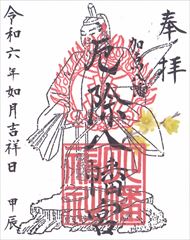 奉拝
厄除八幡宮
令和六年如月吉祥日
甲辰